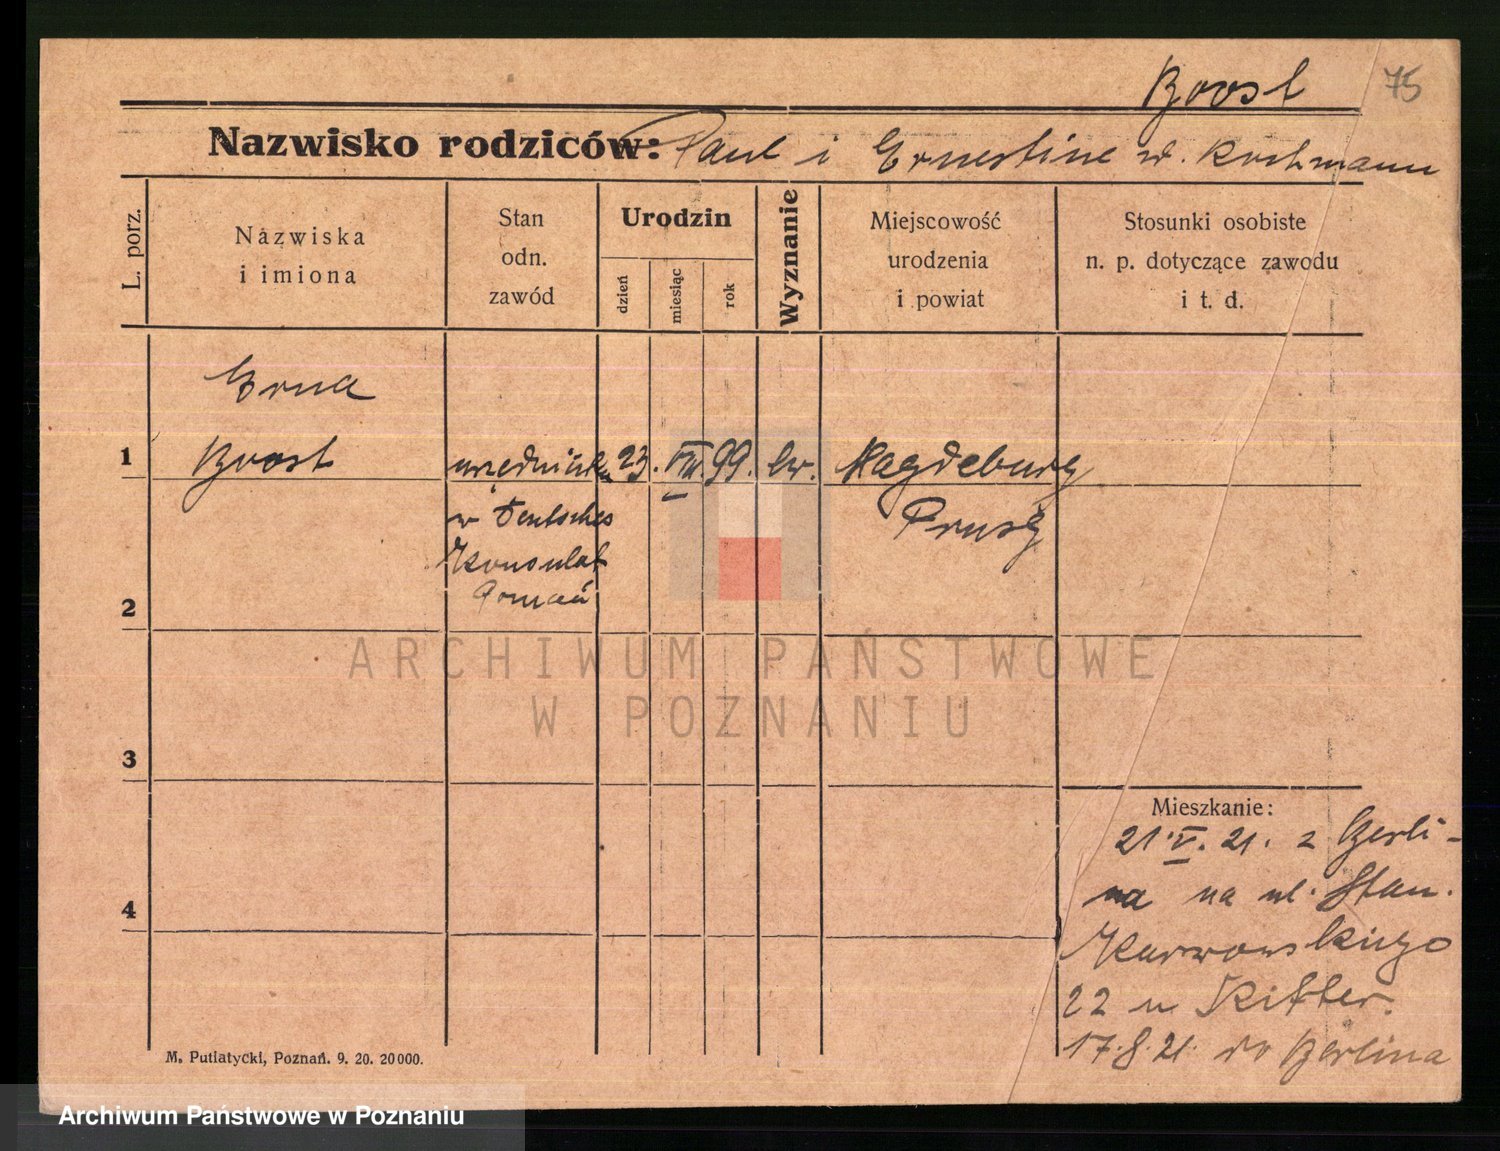 Boost 75
Nazwisko rodziców: Paul i Ernestine
L. porz.
Nazwiska
i imiona
Stan
odn.
zawód
Urodzin
dzień
miesiąc
rok
Wyznanie
Miejscowość
urodzenia
i powiat
Stosunki osobiste
n. p. dotyczące zawodu
i t. d.
Erna
1 Boost urzędniczka 23. VIII. 99. ew. Magdeburg
w Deutsches Prusy
Konsulat
2 Poznań
ARCHIWUM PAŃSTWOWE
W POZNANIU
3
Mieszkanie:
21.V. 21. z Berli-
na na ul. Stan.
4
Karwowskiego
22 u
17.8.21. do Berlina
M. Putiatycki, Poznań. 9. 20. 20000.
Archiwum Państwowe w Poznaniu